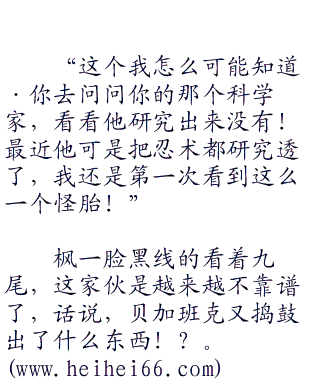 “这个我怎么可能知道
·你去问问你的那个科学
家，看看他研究出来没有！
最近他可是把忍术都研究透
了，我还是第一次看到这么
一个怪胎！”
枫一脸黑线的看着九
尾，这家伙是越来越不靠谱
了，话说，贝加班克又捣鼓
出了什么东西！？。
(www.heihei66.com)